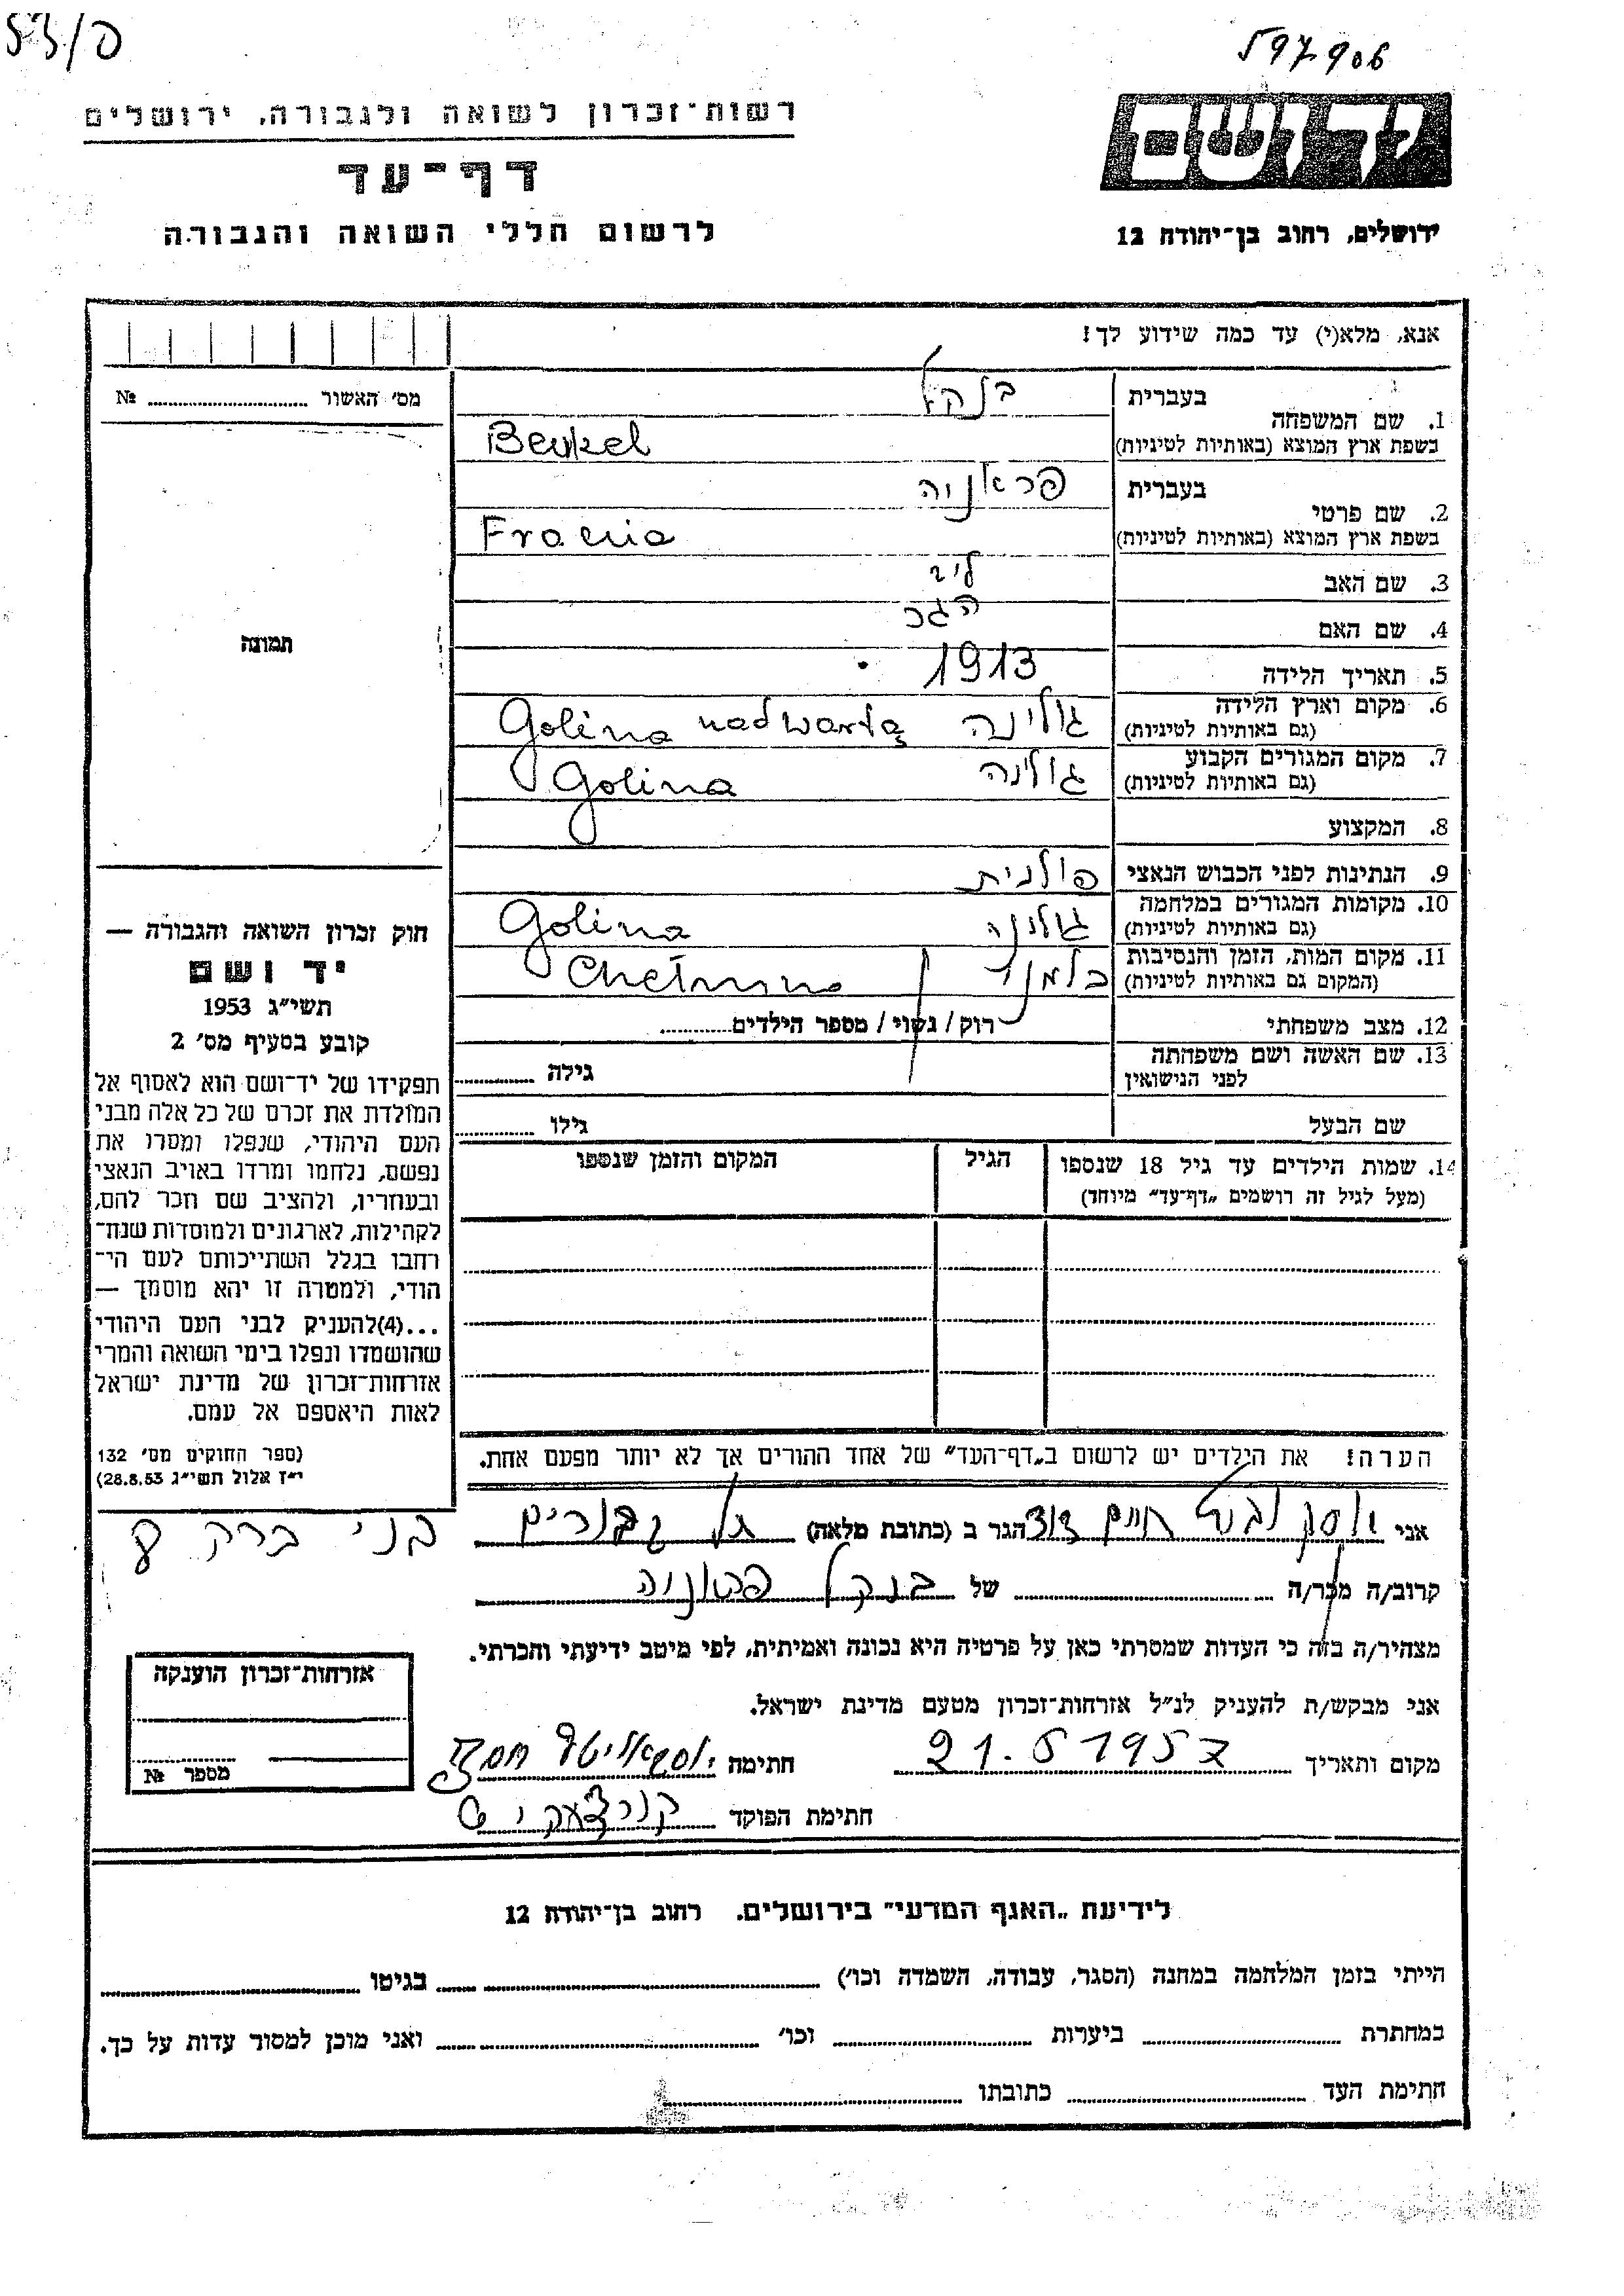 597906
רשות-זכרון לשואה ולגבורה, ירושלים
דף-עד
לרשום חללי השואה והגבורה
יד ושם
ירושלים, רחוב בן-יהודה 12
אנא, מלא(י) עד כמה שידוע לך!
מס' האשור № 
1. שם המשפחה בעברית בנקל
בשפת ארץ המוצא (באותיות לטיניות) Benkel
2. שם פרטי בעברית פראניה
בשפת ארץ המוצא (באותיות לטיניות) Frania
3. שם האב ליב
4. שם האם הגר
5. תאריך הלידה 1913
6. מקום וארץ הלידה
(גם באותיות לטיניות) גולינה Golina nad wartą
7. מקום המגורים הקבוע
(גם באותיות לטיניות) גולינה Golina
8. המקצוע
9. הנתינות לפני הכבוש הנאצי פולנית
10. מקומות המגורים במלחמה
(גם באותיות לטיניות) גולינה Golina
11. מקום המות, הזמן והנסיבות
(המקום גם באותיות לטיניות) כלמנו Chełmno
12. מצב משפחתי רוק / נשוי / מספר הילדים
13. שם האשה ושם משפחתה
לפני הנישואין גילה
שם הבעל גילו
14. שמות הילדים עד גיל 18 שנספו הגיל המקום והזמן שנספו
(מעל לגיל זה רושמים "דף-עד" מיוחד)
הערה! את הילדים יש לרשום ב"דף-העד" של אחד ההורים אך לא יותר מפעם אחת.
תמונה
חוק זכרון השואה והגבורה —
יד ושם
תשי"ג 1953
קובע בסעיף מס' 2
תפקידו של יד-ושם הוא לאסוף אל
המולדת את זכרם של כל אלה מבני
העם היהודי, שנפלו ומסרו את
נפשם, נלחמו ומרדו באויב הנאצי
ובעוזריו, ולהציב שם וזכר להם,
לקהילות, לארגונים ולמוסדות שנח-
רבו בגלל השתייכותם לעם הי-
הודי, ולמטרה זו יהא מוסמך —
...(4)להעניק לבני העם היהודי
שהושמדו ונפלו בימי השואה והמרי
אזרחות-זכרון של מדינת ישראל
לאות היאספם אל עמם.
(ספר החוקים מס' 132
י"ז אלול תשי"ג 28.8.53)
אני חיים דוד הגר ב (כתובת מלאה) תל גבורים בני ברק
קרוב/ה מכר/ה של בנקל פראניה
מצהיר/ה בזה כי העדות שמסרתי כאן על פרטיה היא נכונה ואמיתית, לפי מיטב ידיעתי והכרתי.
אני מבקש/ת להעניק לנ"ל אזרחות-זכרון מטעם מדינת ישראל.
מקום ותאריך 21.5 1957 חתימה
חתימת הפוקד
אזרחות-זכרון הוענקה
מספר №
לידיעת "האגף המדעי" בירושלים, רחוב בן-יהודה 12
הייתי בזמן המלחמה במחנה (הסגר, עבודה, השמדה וכו') בגיטו
במחתרת ביערות וכו' ואני מוכן למסור עדות על כך.
חתימת העד כתובתו